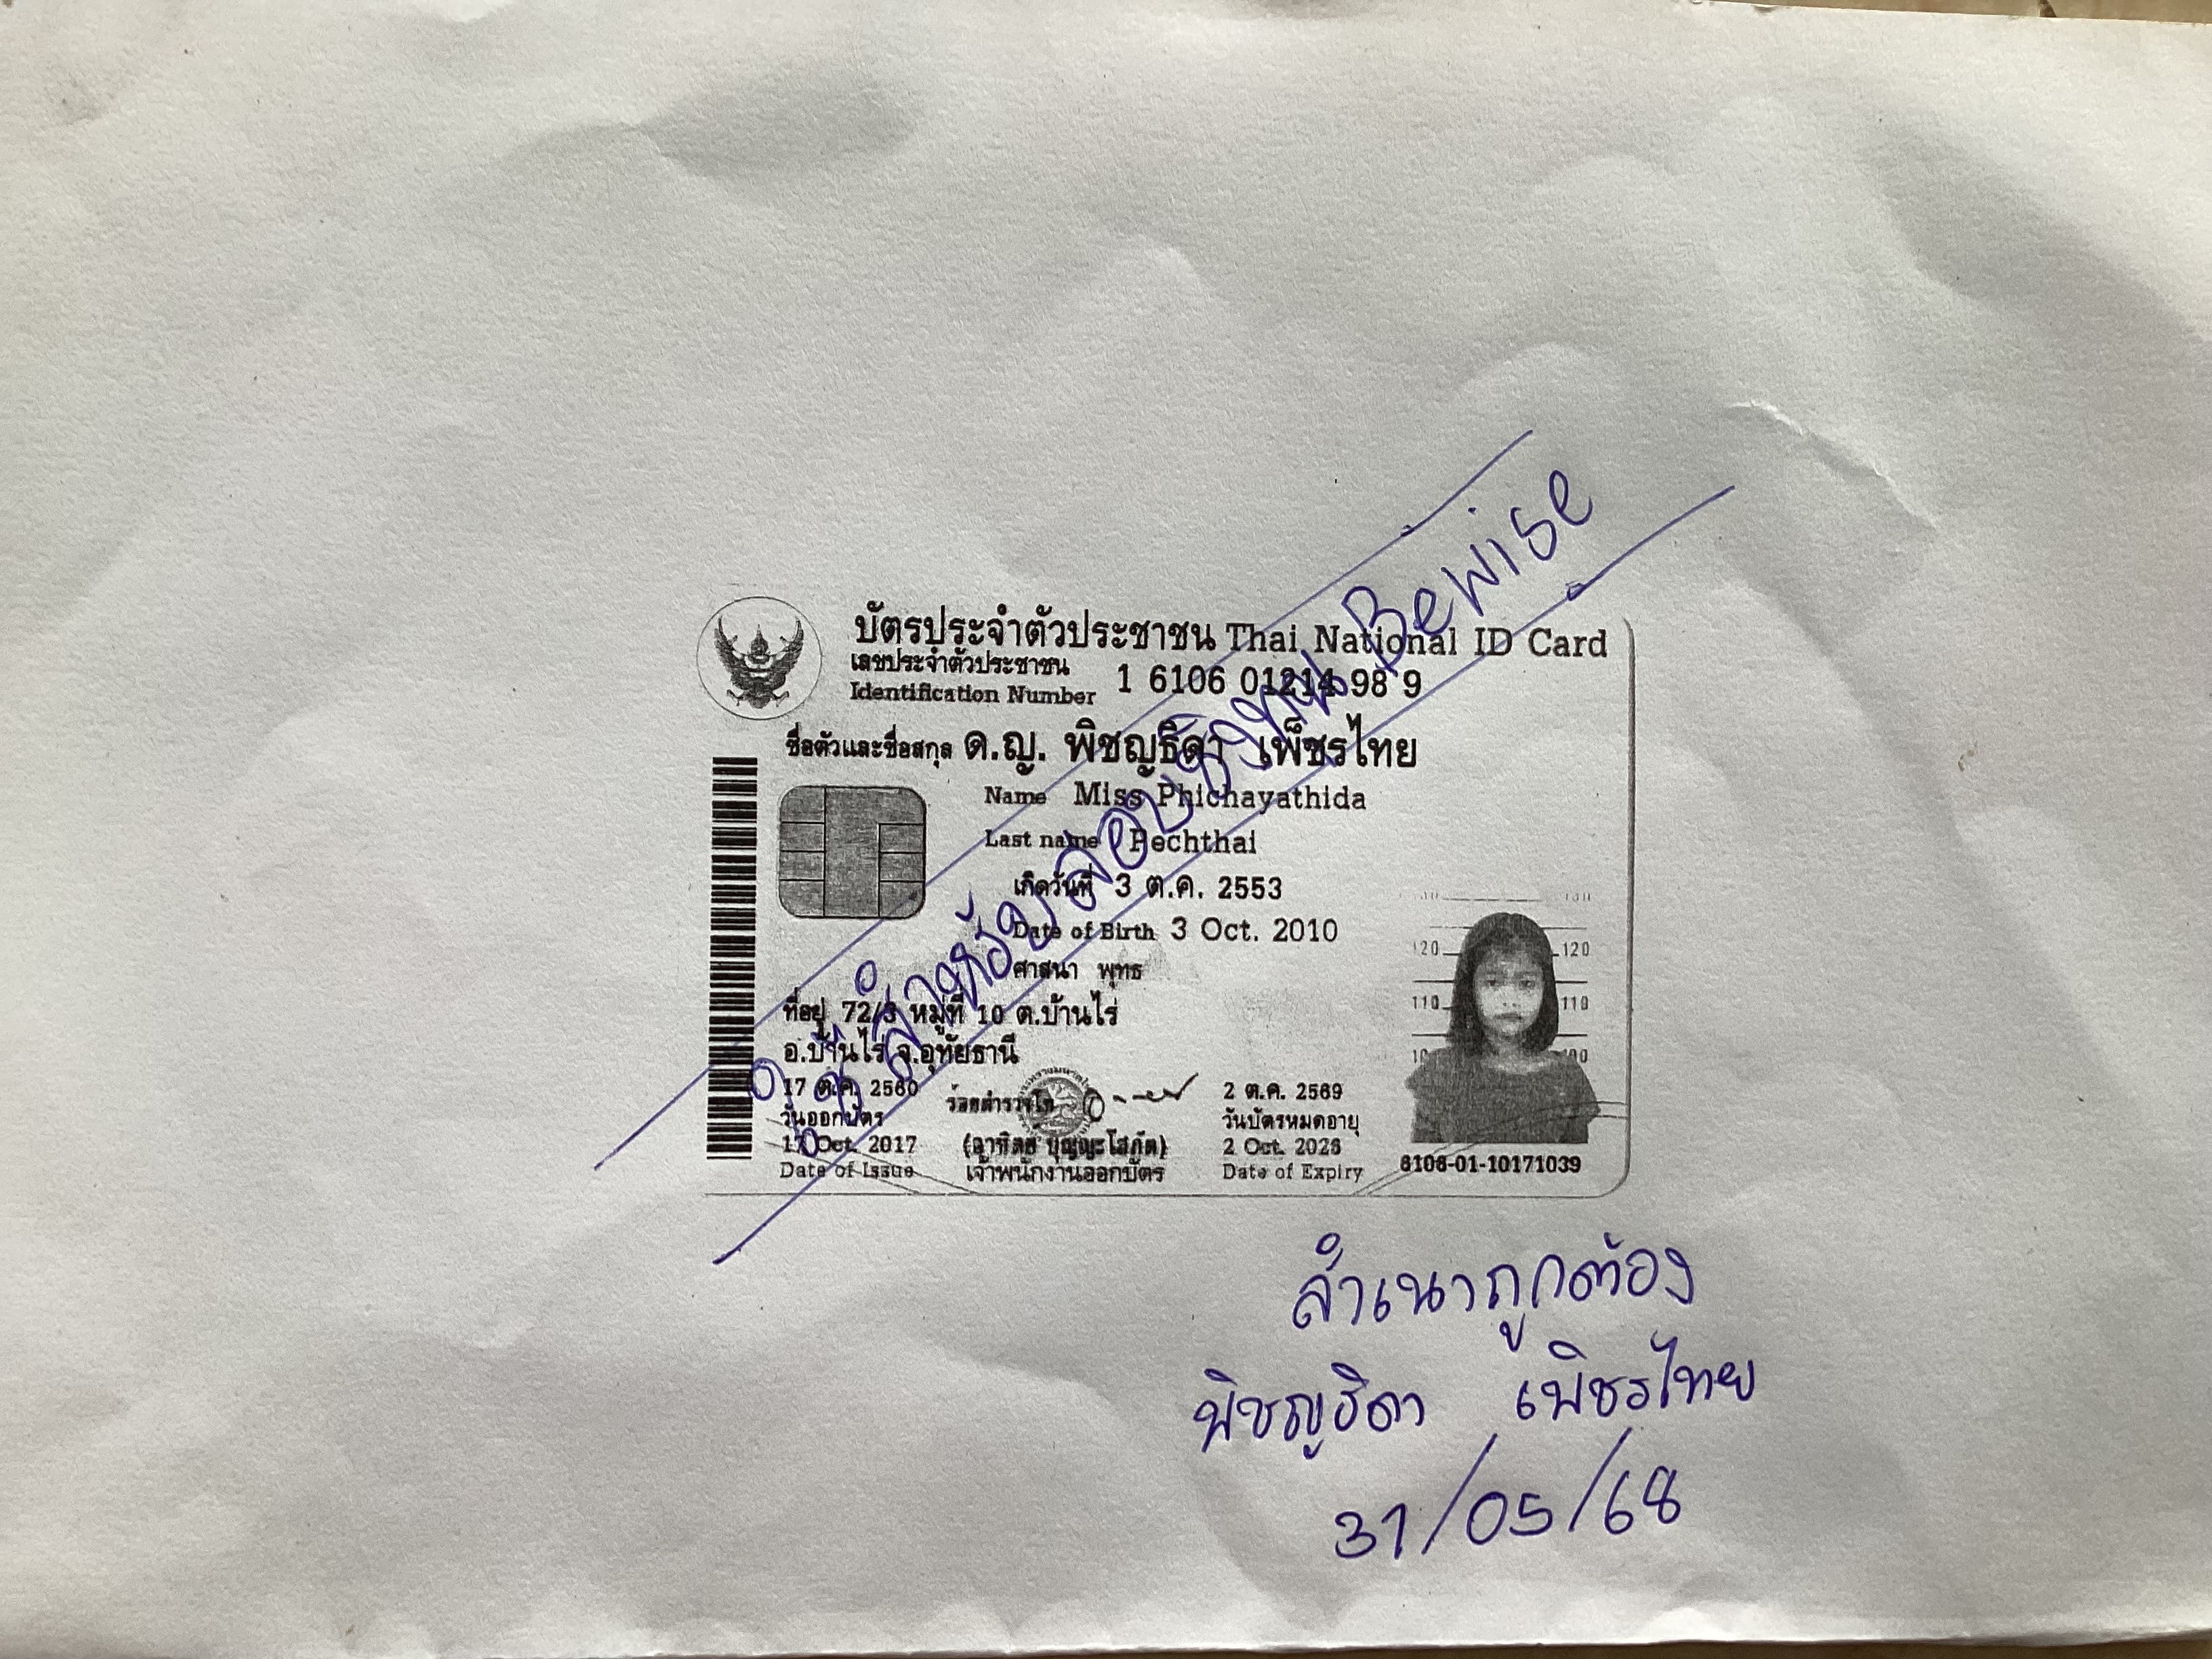 บัตรประจำตัวประชาชน Thai National ID Card
เลขประจำตัวประชาชน
Identification Number 1 6106 01214 98 9
ชื่อตัวและชื่อสกุล ด.ญ. พิชญธิดา เพ็ชรไทย
Name Miss Phichayathida
Last name Pechthai
เกิดวันที่ 3 ต.ค. 2553
Date of Birth 3 Oct. 2010
ศาสนา พุทธ
ที่อยู่ 72/3 หมู่ที่ 10 ต.บ้านไร่
อ.บ้านไร่ จ.อุทัยธานี
17 ต.ค. 2560
วันออกบัตร
17 Oct. 2017
Date of Issue
ร้อยตำรวจโท
(อาทิตย์ บุญญะโสภัต)
เจ้าพนักงานออกบัตร
2 ต.ค. 2569
วันบัตรหมดอายุ
2 Oct. 2026
Date of Expiry
120 120
110 110
6106-01-10171039
ใช้สำหรับสอบ Bewise
สำเนาถูกต้อง
พิชญธิดา เพ็ชรไทย
31/05/68